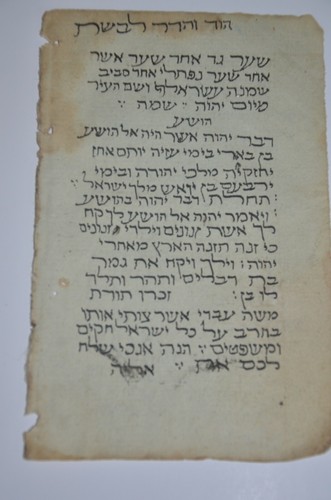 הוד והדר לבשת
שער גד אחד שער אשר
אחד שער נפתלי אחד סביב
שמונה עשר אלף ושם העיר
מיום יהוה שמה :
הושע
דבר יהוה אשר היה אל הושע
בן בארי בימי עזיה יותם אחז
יחזקיה מלכי יהודה ובימי
ירבעם בן יואש מלך ישראל :
תחלת דבר יהוה בהושע
ויאמר יהוה אל הושע לך קח
לך אשת זנונים וילדי זנונים
כי זנה תזנה הארץ מאחרי
יהוה : וילך ויקח את גמר
בת דבלים ותהר ותלד
לו בן : זכרו תורת
משה עבדי אשר צותי אותו
בחרב על כל ישראל חקים
ומשפטים : הנה אנכי שלח
לכם את אליה